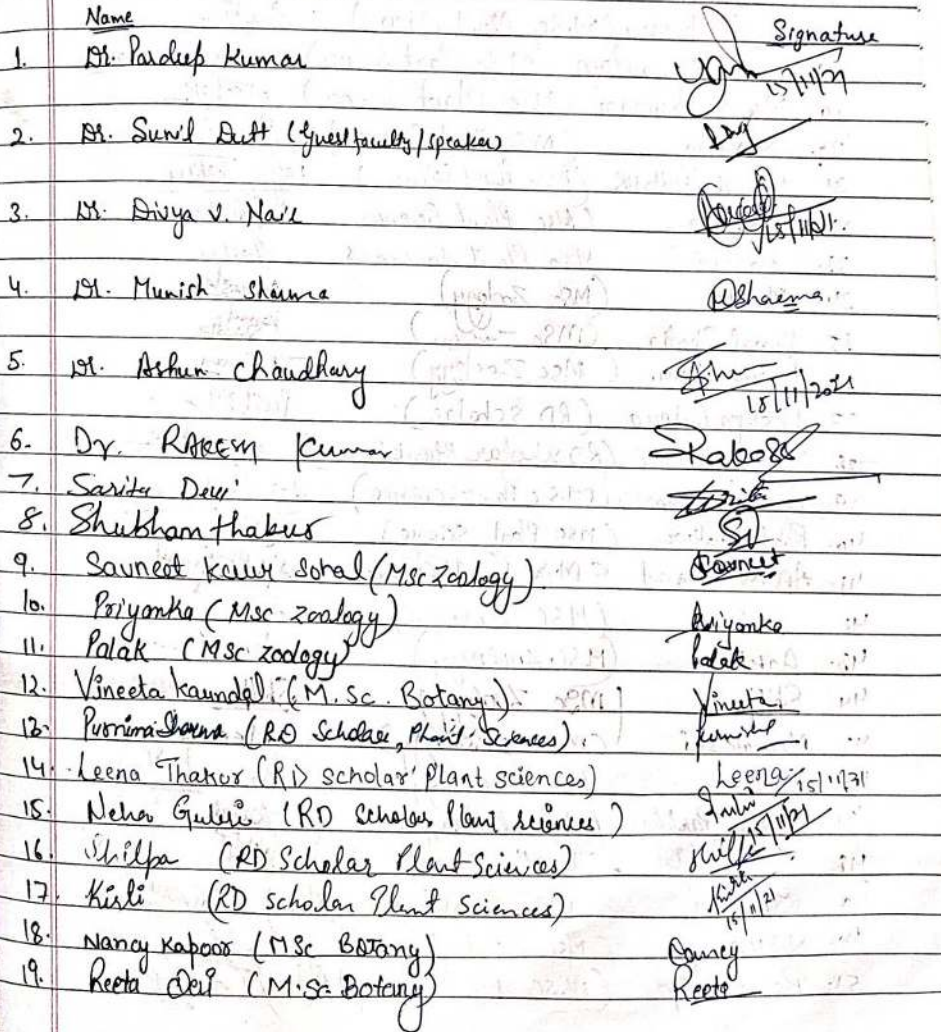 Name Signature
1. Dr. Pardeep Kumar 15/11/21
2. Dr. Sunil Dutt (Guest faculty/speaker)
3. Dr. Divya V. Nair 15/11/21.
4. Dr. Munish Sharma MSharma
5. Dr. Ashun Chaudhary 15/11/2021
6. Dr. RAKESH Kumar
7. Sarita Devi Sarita
8. Shubham thakur
9. Savneet kaur Sohal (MSc Zoology) Savneet
10. Priyanka (MSc zoology) Priyanka
11. Palak (MSc zoology) Palak
12. Vineeta Kaundal (M.Sc. Botany) Vineeta
13. Purnima Sharma (RD Scholar, Plant Sciences).
14. Leena Thakur (RD scholar Plant sciences) Leena 15/11/21
15. Neha (RD Scholar Plant sciences) 15/11/21
16. Shilpa (RD Scholar Plant Sciences)
17. (RD scholar Plant Sciences) 15/11/21
18. Nancy Kapoor (MSc BOTany) Nancy
19. Reeta Devi (M.Sc. Botany) Reeta